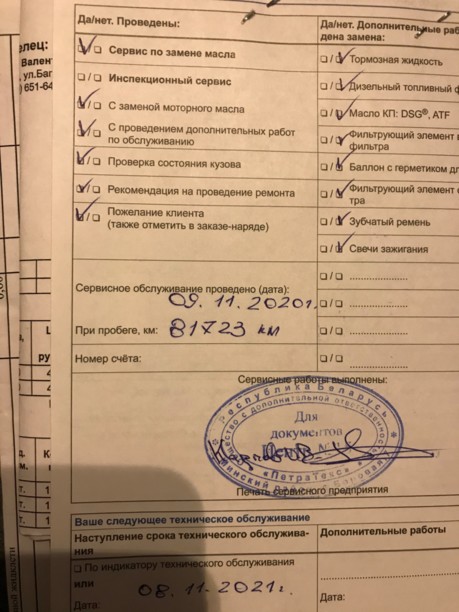 Да/нет. Проведены:
Сервис по замене масла
Инспекционный сервис
С заменой моторного масла
С проведением дополнительных работ
по обслуживанию
Проверка состояния кузова
Рекомендация на проведение ремонта
Пожелание клиента
(также отметить в заказе-наряде)
Сервисное обслуживание проведено (дата):
09.11.2020г.
При пробеге, км: 81723 км
Номер счёта:
Да/нет. Дополнительные раб
дена замена:
Тормозная жидкость
Дизельный топливный ф
Масло КП: DSG®, ATF
Фильтрующий элемент
фильтра
Баллон с герметиком дл
Фильтрующий элемент
тра
Зубчатый ремень
Свечи зажигания
Сервисные работы выполнены:
Республика Беларусь
Общество с дополнительной ответственностью
Для
документов
«ПетраТекс»
Печать сервисного предприятия
Ваше следующее техническое обслуживание
Наступление срока технического обслужива-
ния
По индикатору технического обслуживания
или
Дата: 08.11.2021г.
Дополнительные работы
Дата:
елец:
Вален
, ул.Баг
) 651-64